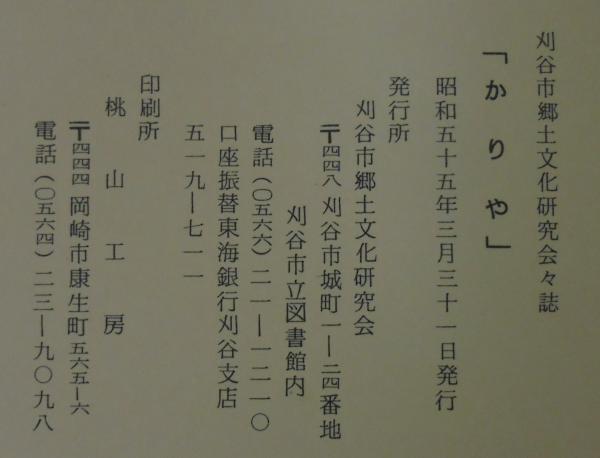 刈谷市郷土文化研究会々誌
「かりや」
昭和五十五年三月三十一日発行
発行所
刈谷市郷土文化研究会
〒四四八 刈谷市城町一―二四番地
刈谷市立図書館内
電話(〇五六六)二一―一二一〇
口座振替東海銀行刈谷支店
五一九―七一一
印刷所
桃山工房
〒四四四 岡崎市康生町五六五―六
電話(〇五六四)二三―九〇九八